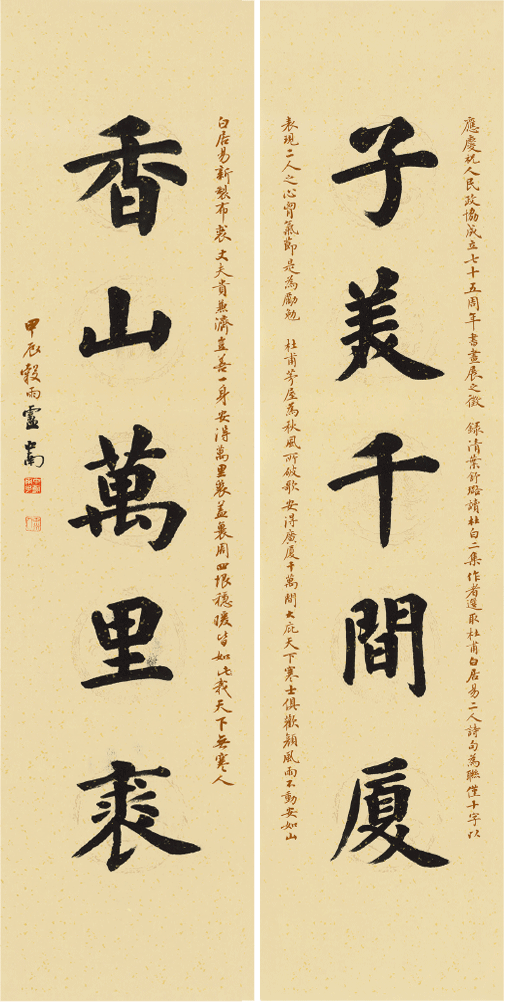 應慶祝人民政協成立七十五周年書畫展之徵 錄清葉舒璐讀杜白二集作者選取杜甫白居易二人詩句為聯僅十字以
子美千間厦
表現二人之心胷氣節是為勵勉 杜甫茅屋為秋風所破歌安得廣厦千萬間大庇天下寒士俱歡顏風雨不動安如山
白居易新製布裘丈夫貴兼濟豈善一身安得萬里裘蓋裹周四垠穩暖皆如此我天下無寒人
香山萬里裘
甲辰穀雨盧中南